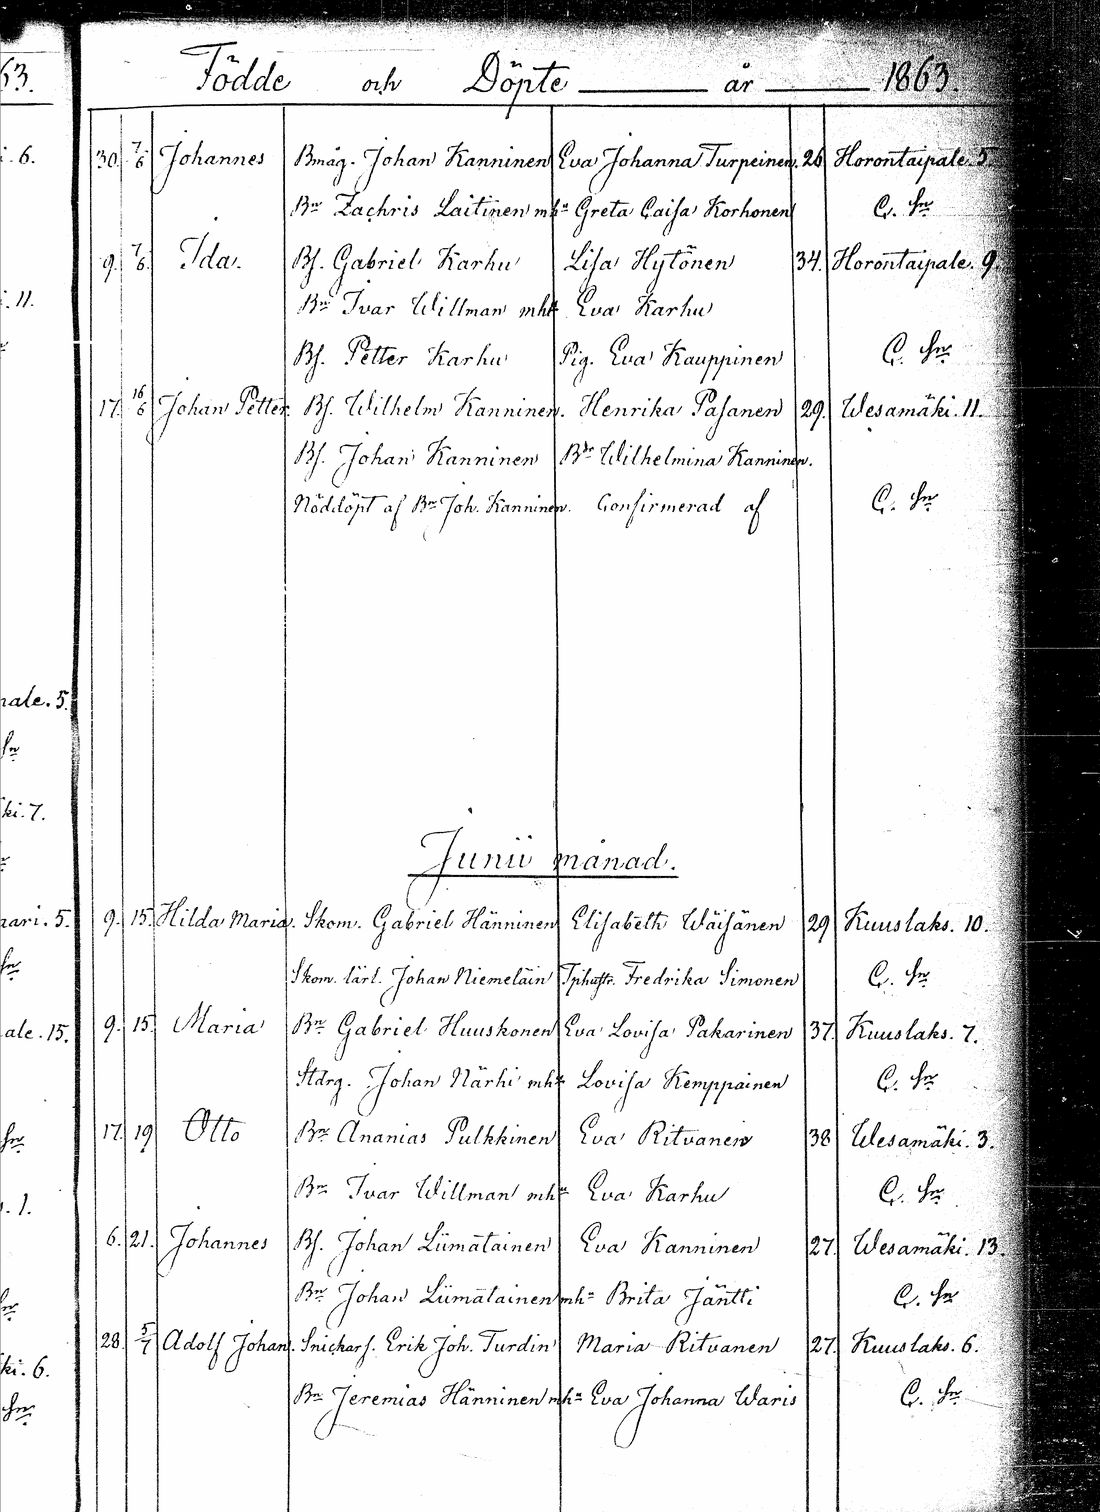 63.
Födde och Döpte år 1863.
i. 6.
30. 7/6 Johannes Bmåg. Johan Kanninen Eva Johanna Turpeinen. 26 Horontaipale. 5
Bn Zachris Laitinen mhu Greta Caisa Korhonen C. Sn
9. 7/6. Ida. Bs. Gabriel Karhu Lisa Hytönen 34. Horontaipale. 9.
i. 11. Bn Ivar Willman mhu Eva Karhu
Bs. Petter Karhu Pig. Eva Kauppinen C. Sn
17. 16/6 Johan Petter. Bs. Wilhelm Kanninen. Henrika Pasanen 29. Wesamäki. 11.
Bs. Johan Kanninen Bdr Wilhelmina Kanninen.
Nöddöpt af Bn Joh. Kanninen. Confirmerad af C. Sn
pale. 5.
Sn
ki. 7.
Junii månad.
nari. 5. 9. 15. Hilda Maria. Skom. Gabriel Hänninen Elisabeth Wäisänen 29 Kuuslaks. 10.
Sn Skom. lärl. Johan Niemeläin Fredrika Simonen C. Sn
ale. 15. 9. 15. Maria Bn Gabriel Huuskonen Eva Lovisa Pakarinen 37. Kuuslaks. 7.
Stdrg. Johan Närhi mhu Lovisa Kemppainen C. Sn
Sn 17. 19 Otto Bn Ananias Pulkkinen Eva Ritvanen 38 Wesamäki. 3.
. 1. Bn Ivar Willman mhu Eva Karhu C. Sn
6. 21. Johannes Bs. Johan Liimatainen Eva Kanninen 27. Wesamäki. 13.
Sn Bn Johan Liimatainen mhu Brita Jäntti C. Sn
ki. 6. 28. 5/7 Adolf Johan. Snickars. Erik Joh. Turdin Maria Ritvanen 27. Kuuslaks. 6.
Sn Bn Jeremias Hänninen mhu Eva Johanna Waris C. Sn